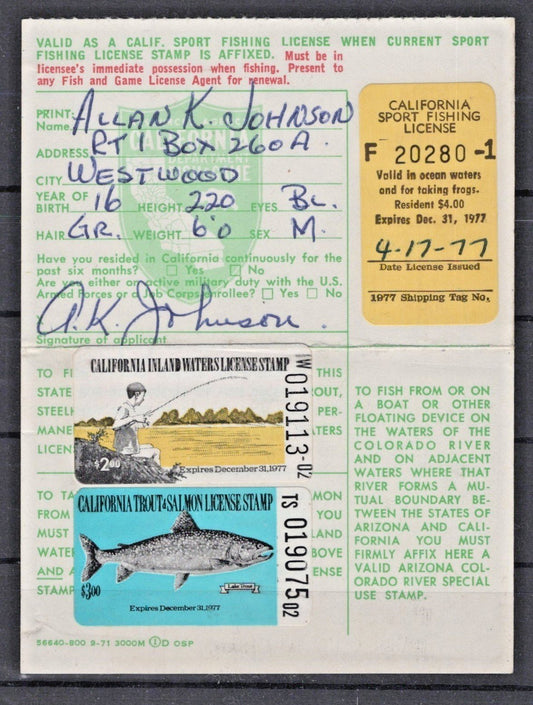 VALID AS A CALIF. SPORT FISHING LICENSE WHEN CURRENT SPORT
FISHING LICENSE STAMP IS AFFIXED. Must be in
licensee's immediate possession when fishing. Present to
any Fish and Game License Agent for renewal.
PRINT:
Name ALLAN K. JOHNSON
ADDRESS RT BOX 260A
CITY WESTWOOD
YEAR OF
BIRTH 16 HEIGHT 220 EYES BL.
HAIR GR. WEIGHT 6'0 SEX M.
Have you resided in California continuously for the
past six months? Yes No
Are you either on active military duty with the U.S.
Armed Forces or a Job Corps enrollee? Yes No
A.K. Johnson.
Signature of applicant
CALIFORNIA
DEPARTMENT
CALIFORNIA
SPORT FISHING
LICENSE
F 20280-1
Valid in ocean waters
and for taking frogs.
Resident $4.00
Expires Dec. 31, 1977
4-17-77
Date License Issued
1977 Shipping Tag No.
TO FI
THIS
STATE
OUT,
STEELH
PER-
MANE
WATERS
LICEN
CALIFORNIA INLAND WATERS LICENSE STAMP
$2.00
Expires December 31, 1977
W 019113-02
TO TA
MON
YOU
YOU
MUST
WATE
ABOVE
AND A
LICENSE
STAMP
CALIFORNIA TROUT & SALMON LICENSE STAMP
$3.00
Lake Trout
Expires December 31, 1977
TS 019075 02
TO FISH FROM OR ON
A BOAT OR OTHER
FLOATING DEVICE ON
THE WATERS OF THE
COLORADO RIVER
AND ON ADJACENT
WATERS WHERE THAT
RIVER FORMS A MU-
TUAL BOUNDARY BE-
TWEEN THE STATES OF
ARIZONA AND CALI-
FORNIA YOU MUST
FIRMLY AFFIX HERE A
VALID ARIZONA COL-
ORADO RIVER SPECIAL
USE STAMP.
56640-800 9-71 3000M OSP